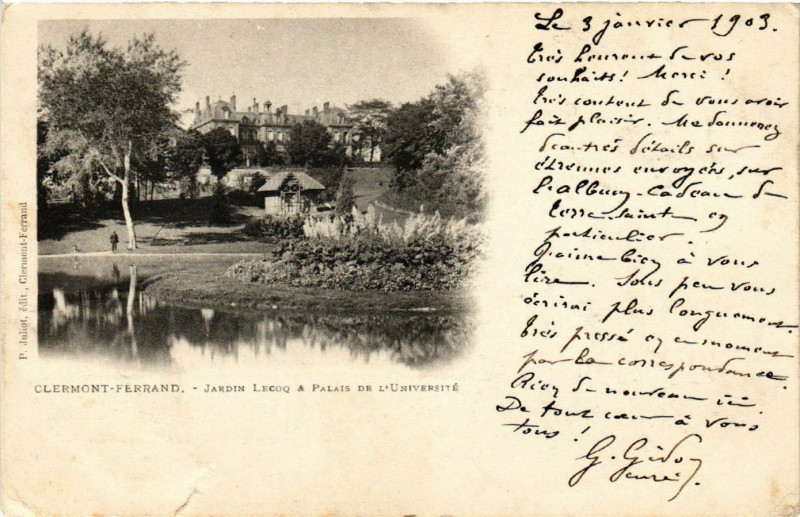 Le 3 janvier 1903.
Très heureux de vos
souhaits! Merci!
Très content de vous avoir
fait plaisir. Me donnerez
d'autres détails sur
étrennes envoyées, sur
l'album-cadeau de
terre-sainte en
particulier.
J'aime bien à vous
lire. Sous peu vous
écrirai plus longuement.
Très pressé en ce moment
par la correspondance.
Rien de nouveau ici.
De tout cœur à vous
tous!
G. Gidon
curé
P. Juliot, édit., Clermont-Ferrand
CLERMONT-FERRAND. - JARDIN LECOQ & PALAIS DE L'UNIVERSITÉ